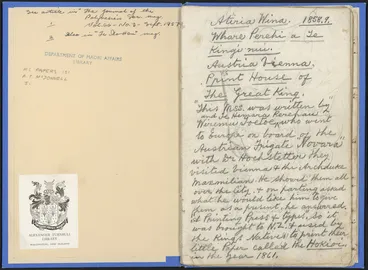 See article in "The Journal of the
Polynesian Soc. Aug
Vol. 66 - No. 3. Sept. 1957.
also in "Te Ao Hou" Aug
DEPARTMENT OF MAORI AFFAIRS
LIBRARY
MS PAPERS 151
ALEXANDER TURNBULL
LIBRARY
WELLINGTON, NEW ZEALAND
Ateria Wina. 1859.
Whare Perehi a Te
Kingi nui.
Austria Vienna.
Print House of
"The Great King."
"This M.S.S. was written by
and Te Hemara Rerehau
Wiremu Toetoe, who went
to Europe on board of the
Austrian Frigate "Novara"
with Dr Hochstetter they
visited Vienna & the Archduke
Maxmilian. He showed them all
over the City, & on parting asked
what he would like him to give
them as a present, he answered,
a Printing Press & type. So it
was brought to N.Z. & used by
the King Natives to print their
little paper called the Hokioi
in the Year 1861.